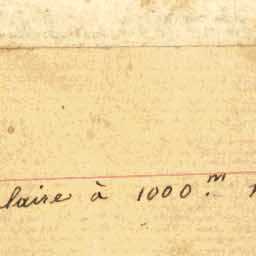 laire à 1000.m